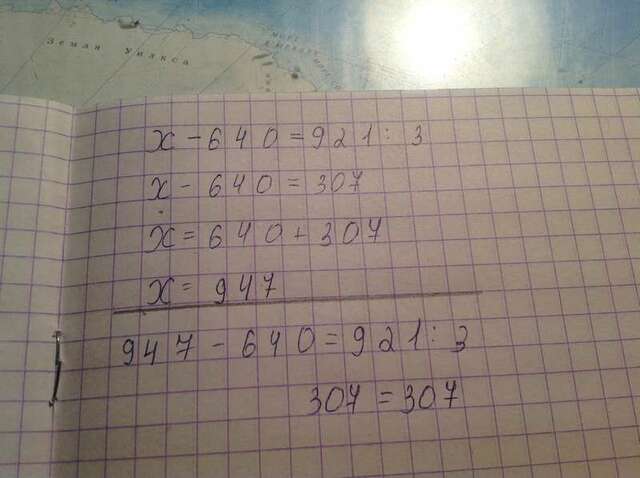 Земля Уилкса
x - 640 = 921 : 3
x - 640 = 307
x = 640 + 307
x = 947
947 - 640 = 921 : 3
307 = 307